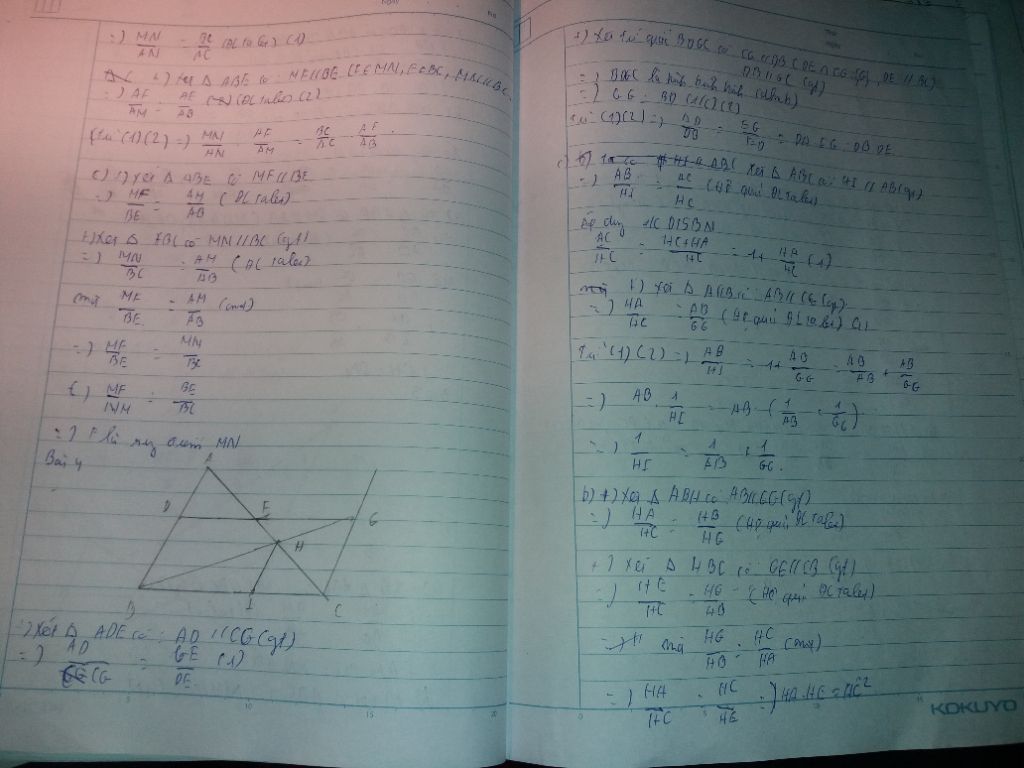 =) MN/AN = BC/AC (ĐL talet) (1)
2) Xét Δ ABE có MF//BE (F∈MN, E∈BC, MN//BC
=) AF/AM = AE/AB (ĐL tales) (2)
Từ (1)(2) =) MN/AN . AF/AM = BC/AC . AE/AB
c) 1) Xét Δ ABE có MF//BE
=) MF/BE = AM/AB (ĐL tales)
+) Xét Δ ABC có MN//BC (gt)
=) MN/BC = AM/AB (ĐL tales)
mà MF/BE = AM/AB (cmt)
=) MF/BE = MN/BC
MF/NM = BE/BC
=) F là trung điểm MN
Bài 4
A
D E G
H
B I C
+) Xét Δ ADE có: AD//CG (gt)
=) AD/CG = GE/DE (1)
+) Xét tứ giác BDGC có CG//DB (DE∩CG={G}, DE//BC)
DB//GC (gt)
=) BDGC là hình bình hành (dhnb)
=) CG = BD (2)
Từ (1)(2) =) AD/DB = EG/ED = DA.EG = DB.DE
c) Xét Δ ABC có HI//AB (gt)
=) AB/HI = AC/HC (Hệ quả ĐL tales)
Áp dụng t/c DTSBN
AC/HC = HC+HA/HC = 1+ HA/HC (1)
Xét Δ AHB có: AB//CG (gt)
=) HA/HC = AB/CG (Hệ quả ĐL tales)
Từ (1)(2) =) AB/HI = 1+ AB/CG = AB/AB + AB/CG
=) AB . 1/HI = AB . (1/AB + 1/CG)
=) 1/HI = 1/AB + 1/CG.
b) +) Xét Δ ABH có AB//CG (gt)
=) HA/HC = HB/HG (Hệ quả ĐL tales)
+) Xét Δ HBC có GE//CB (gt)
=) HE/HC = HG/HB (Hệ quả ĐL tales)
mà HG/HB = HC/HA (cmt)
=) HA/HC = HC/HE =) HA.HE = HC²
KOKUYO